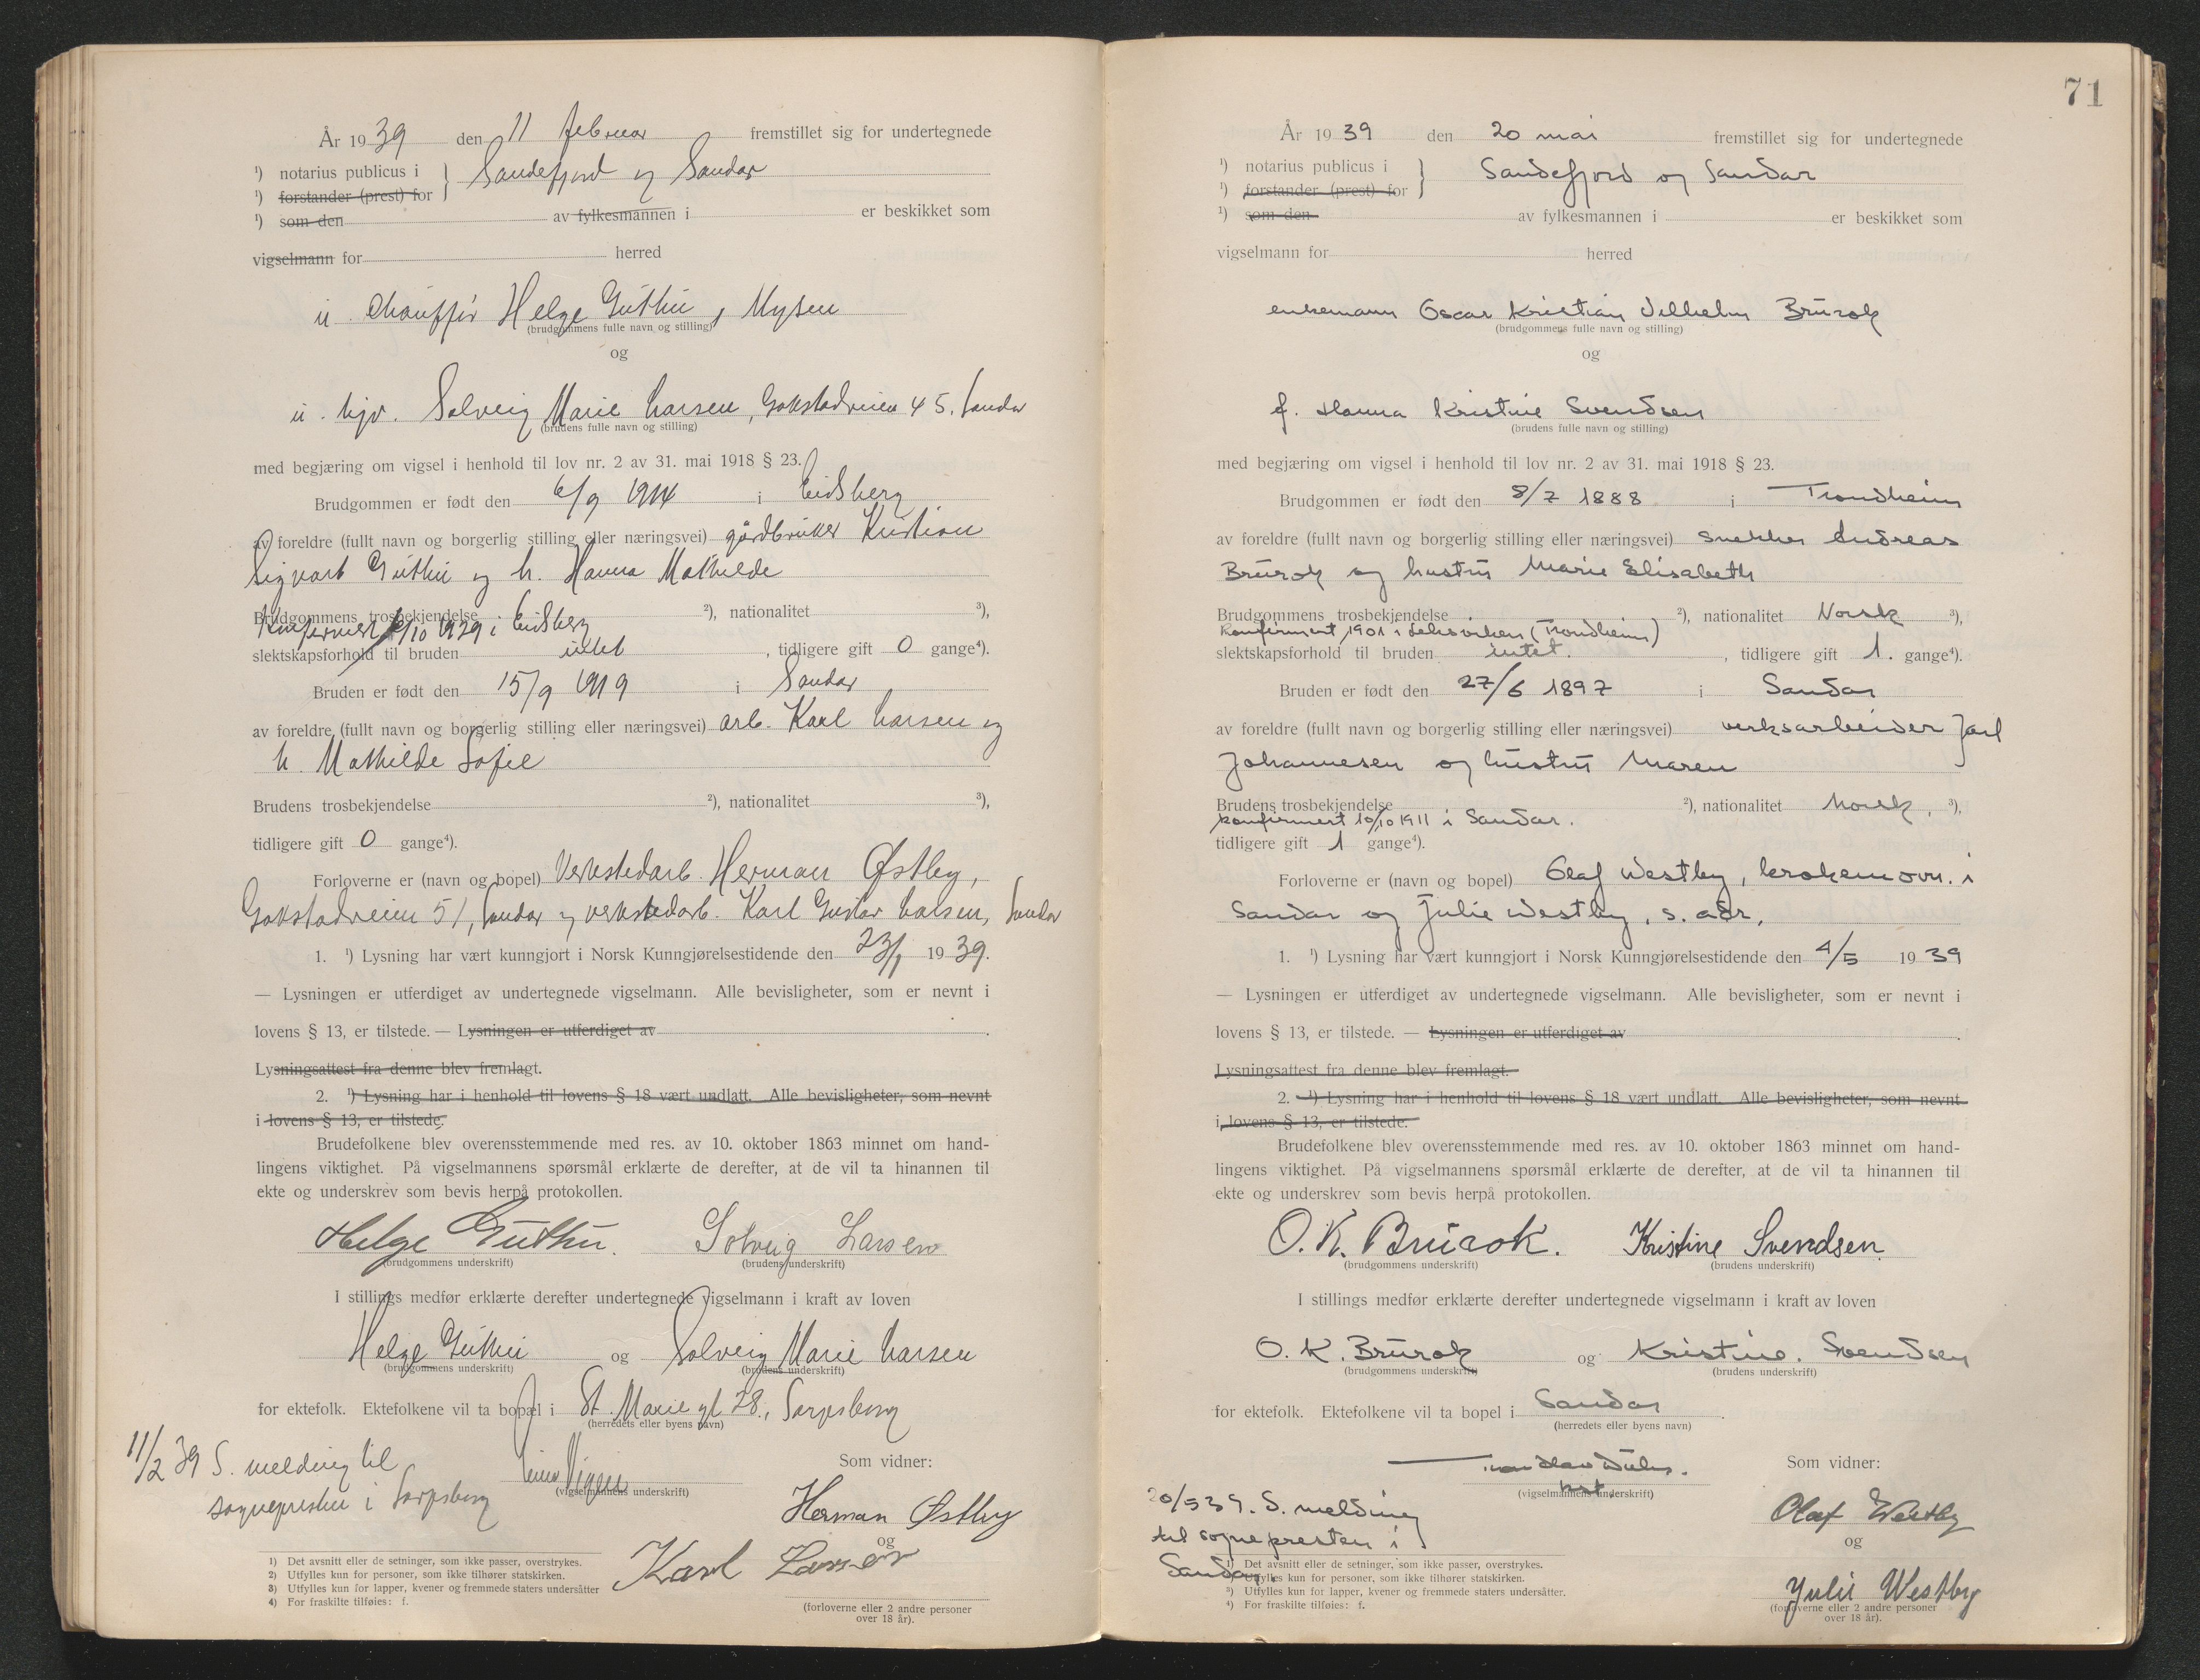 År 1939 den 11 februar fremstillet sig for undertegnede
¹) notarius publicus i } Sandefjord og Sandar
¹) forstander (prest) for
¹) som den av fylkesmannen i er beskikket som
vigselmann for herred
u. chauffør Helge Guthu, Mysen
(brudgommens fulle navn og stilling)
og
u. hjv. Solveig Marie Larsen, Gokstadveien 45, Sandar
(brudens fulle navn og stilling)
med begjæring om vigsel i henhold til lov nr. 2 av 31. mai 1918 § 23.
Brudgommen er født den 6/9 1914 i Eidsberg
av foreldre (fullt navn og borgerlig stilling eller næringsvei) gårdbruker Kristian
Sigvart Guthu og h. Hanna Mathilde
Brudgommens trosbekjendelse ²), nationalitet ³),
Konfirmert /10 1929 i Eidsberg
slektskapsforhold til bruden intet, tidligere gift 0 gange⁴).
Bruden er født den 15/9 1919 i Sandar
av foreldre (fullt navn og borgerlig stilling eller næringsvei) arb. Karl Larsen og
h. Mathilde Sofie
Brudens trosbekjendelse ²), nationalitet ³),
tidligere gift 0 gange⁴).
Forloverne er (navn og bopel) Verkstedarb. Herman Østby,
Gokstadveien 51, Sandar og verkstedarb. Karl Gustav Larsen, Sandar
1. ¹) Lysning har vært kunngjort i Norsk Kunngjørelsestidende den 23/1 1939.
— Lysningen er utferdiget av undertegnede vigselmann. Alle bevisligheter, som er nevnt i
lovens § 13, er tilstede. — Lysningen er utferdiget av .
Lysningsattest fra denne blev fremlagt.
2. ¹) Lysning har i henhold til lovens § 18 vært undlatt. Alle bevisligheter, som nevnt
i lovens § 13, er tilstede.
Brudefolkene blev overensstemmende med res. av 10. oktober 1863 minnet om hand-
lingens viktighet. På vigselmannens spørsmål erklærte de derefter, at de vil ta hinannen til
ekte og underskrev som bevis herpå protokollen.
Helge Guthu. Solveig Larsen
(brudgommens underskrift) (brudens underskrift)
I stillings medfør erklærte derefter undertegnede vigselmann i kraft av loven
Helge Guthu og Solveig Marie Larsen
(brudgommens underskrift) (brudens underskrift)
for ektefolk. Ektefolkene vil ta bopel i St. Marie gt 28, Sarpsborg
(herredets eller byens navn)
11/2 39 S. melding til
sognepresten i Sarpsborg
(vigselmannens underskrift)
Som vidner:
Herman Østby
og
Karl Larsen
(forloverne eller 2 andre personer
over 18 år).
1) Det avsnitt eller de setninger, som ikke passer, overstrykes.
2) Utfylles kun for personer, som ikke tilhører statskirken.
3) Utfylles kun for lapper, kvener og fremmede staters undersåtter
4) For fraskilte tilføies: f.
71
År 1939 den 20 mai fremstillet sig for undertegnede
¹) notarius publicus i } Sandefjord og Sandar
¹) forstander (prest) for
¹) som den av fylkesmannen i er beskikket som
vigselmann for herred
enkemann Oscar Kristian Vilhelm Brurok
(brudgommens fulle navn og stilling)
og
f. Hanna Kristine Svendsen
(brudens fulle navn og stilling)
med begjæring om vigsel i henhold til lov nr. 2 av 31. mai 1918 § 23.
Brudgommen er født den 8/7 1888 i Trondheim
av foreldre (fullt navn og borgerlig stilling eller næringsvei) snekker Andreas
Brurok og hustru Marie Elisabeth
Brudgommens trosbekjendelse ²), nationalitet Norsk ³),
Konfirmert 1901 i Leksviken (Trondheim)
slektskapsforhold til bruden intet., tidligere gift 1. gange⁴).
Bruden er født den 27/6 1897 i Sandar
av foreldre (fullt navn og borgerlig stilling eller næringsvei) verksarbeider Jarl
Johannesen og hustru Maren
Brudens trosbekjendelse ²), nationalitet Norsk. ³),
konfirmert 10/10 1911 i Sandar.
tidligere gift 1 gange⁴).
Forloverne er (navn og bopel) Olaf Westby, Krokemovn. i
Sandar og Julie Westby, s. adr.
1. ¹) Lysning har vært kunngjort i Norsk Kunngjørelsestidende den 4/5 1939
— Lysningen er utferdiget av undertegnede vigselmann. Alle bevisligheter, som er nevnt i
lovens § 13, er tilstede. — Lysningen er utferdiget av .
Lysningsattest fra denne blev fremlagt.
2. ¹) Lysning har i henhold til lovens § 18 vært undlatt. Alle bevisligheter, som nevnt
i lovens § 13, er tilstede.
Brudefolkene blev overensstemmende med res. av 10. oktober 1863 minnet om hand-
lingens viktighet. På vigselmannens spørsmål erklærte de derefter, at de vil ta hinannen til
ekte og underskrev som bevis herpå protokollen.
O. K. Brurok. Kristine Svendsen
(brudgommens underskrift) (brudens underskrift)
I stillings medfør erklærte derefter undertegnede vigselmann i kraft av loven
O. K. Brurok og Kristine. Svendsen
(brudgommens underskrift) (brudens underskrift)
for ektefolk. Ektefolkene vil ta bopel i Sandar .
(herredets eller byens navn)
(vigselmannens underskrift)
20/5 39. S. melding
til sognepresten i
Sandar.
Som vidner:
Olaf Westby
og
Julie Westby
(forloverne eller 2 andre personer
over 18 år).
¹) Det avsnitt eller de setninger, som ikke passer, overstrykes.
²) Utfylles kun for personer, som ikke tilhører statskirken.
³) Utfylles kun for lapper, kvener og fremmede staters undersåtter.
⁴) For fraskilte tilføies: f.